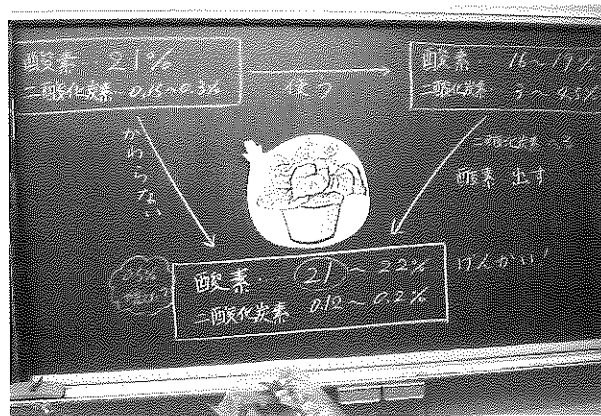 酸素・21%
二酸化炭素・0.15〜0.3%
使う
酸素 16〜19%
二酸化炭素
かわらない
二酸化炭素
酸素 出す
酸素・ 21 〜 22%
二酸化炭素 0.12〜0.2%
げんかい!